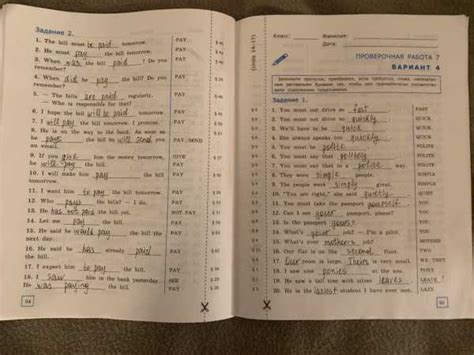 Задание 2.
1. The bill must be paid tomorrow. PAY
2. He must pay the bill tomorrow. PAY
3. When was the bill paid? Do you PAY
remember?
4. When did he pay the bill? Do you PAY
remember?
5. — The bills are paid regularly. PAY
— Who is responsible for that?
6. I hope the bill will be paid tomorrow. PAY
7. I will pay the bill tomorrow. I promise. PAY
8. He is on the way to the bank. As soon as
he pays the bill he will send you PAY/SEND
an email.
9. If you give him the money tomorrow, GIVE
he will pay the bill. PAY
10. I will make him pay the bill PAY
tomorrow.
11. I want him to pay the bill tomorrow. PAY
12. Who pays the bills? — I do. PAY
13. He has not paid the bill yet. NOT PAY
14. Let me pay the bill. PAY
15. He said he would pay the bill the PAY
next day.
16. He said he has already paid PAY
the bill.
17. I expect him to pay the bill. PAY
18. I saw him in the bank yesterday. SEE
He was paying the bill. PAY
54
(Units 14–17)
Класс: Фамилия:
Дата:
ПРОВЕРОЧНАЯ РАБОТА 7
ВАРИАНТ 4
Задание 1.
1. You must not drive so fast. FAST
2. You must not drive so quickly. QUICK
3. We'll have to be quick. QUICK
4. She always speaks too quickly. QUICK
5. You must be polite. POLITE
6. You must say that politely. POLITE
7. You must say that in a polite way. POLITE
8. They were simple people. SIMPLE
9. The people were simply great. SIMPLE
10. "You are right," she said quietly. QUIET
11. You must take the passport yourself. YOU
12. Can I see your passport, please? YOU
13. Is the passport yours? YOU
14. What's your job? — I'm a pilot. YOU
15. What's your mother's job? MOTHER
16. Our flat is on the second floor. TWO
17. Our room is large. Theirs is very small. WE, THEY
18. I saw ponies at the zoo. PONY
19. He saw a tall tree with silver leaves. LEAVE
20. He is the laziest student I have ever met. LAZY
55